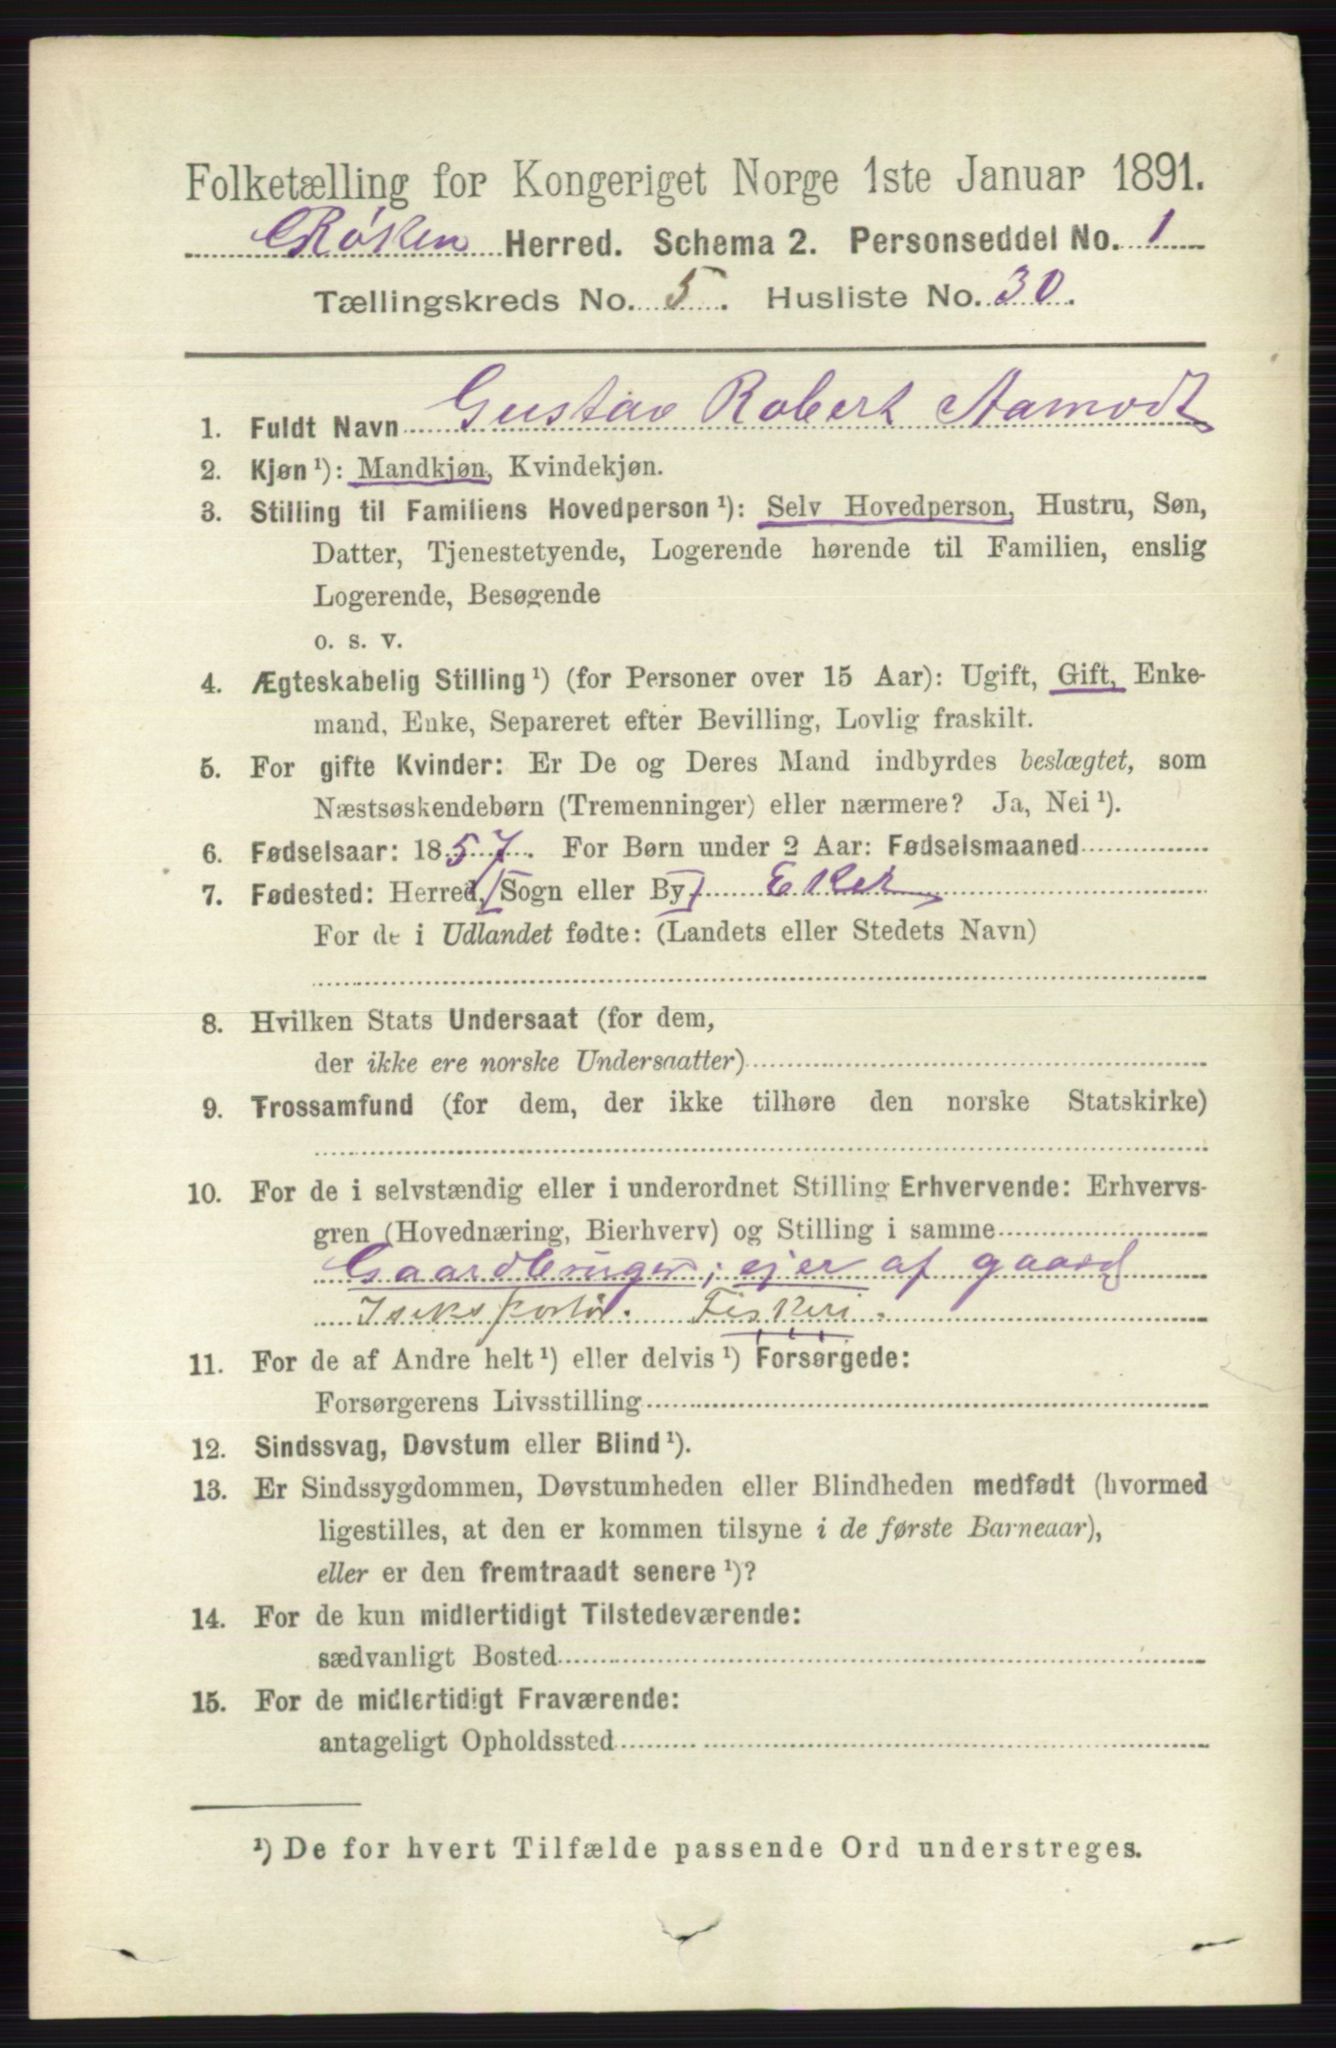 Folketælling for Kongeriget Norge 1ste Januar 1891.
Røken Herred. Schema 2. Personseddel No. 1
Tællingskreds No. 5. Husliste No. 30.
1. Fuldt Navn Gustav Robert Aamodt
2. Kjøn ¹): Mandkjøn, Kvindekjøn.
3. Stilling til Familiens Hovedperson ¹): Selv Hovedperson, Hustru, Søn,
Datter, Tjenestetyende, Logerende hørende til Familien, enslig
Logerende, Besøgende
o. s. v.
4. Ægteskabelig Stilling ¹) (for Personer over 15 Aar): Ugift, Gift, Enke-
mand, Enke, Separeret efter Bevilling, Lovlig fraskilt.
5. For gifte Kvinder: Er De og Deres Mand indbyrdes beslægtet, som
Næstsøskendebørn (Tremenninger) eller nærmere? Ja, Nei ¹).
6. Fødselsaar: 1857. For Børn under 2 Aar: Fødselsmaaned
7. Fødested: Herred, [Sogn eller By] Eker
For de i Udlandet fødte: (Landets eller Stedets Navn)
8. Hvilken Stats Undersaat (for dem,
der ikke ere norske Undersaatter)
9. Trossamfund (for dem, der ikke tilhøre den norske Statskirke)
10. For de i selvstændig eller i underordnet Stilling Erhvervende: Erhvervs-
gren (Hovednæring, Bierhverv) og Stilling i samme
Gaardbruger; ejer af gaard
Iseksportør. Fiskeri.
11. For de af Andre helt ¹) eller delvis ¹) Forsørgede:
Forsørgerens Livsstilling
12. Sindssvag, Døvstum eller Blind ¹).
13. Er Sindssygdommen, Døvstumheden eller Blindheden medfødt (hvormed
ligestilles, at den er kommen tilsyne i de første Barneaar),
eller er den fremtraadt senere ¹)?
14. For de kun midlertidigt Tilstedeværende:
sædvanligt Bosted
15. For de midlertidigt Fraværende:
antageligt Opholdssted
¹) De for hvert Tilfælde passende Ord understreges.